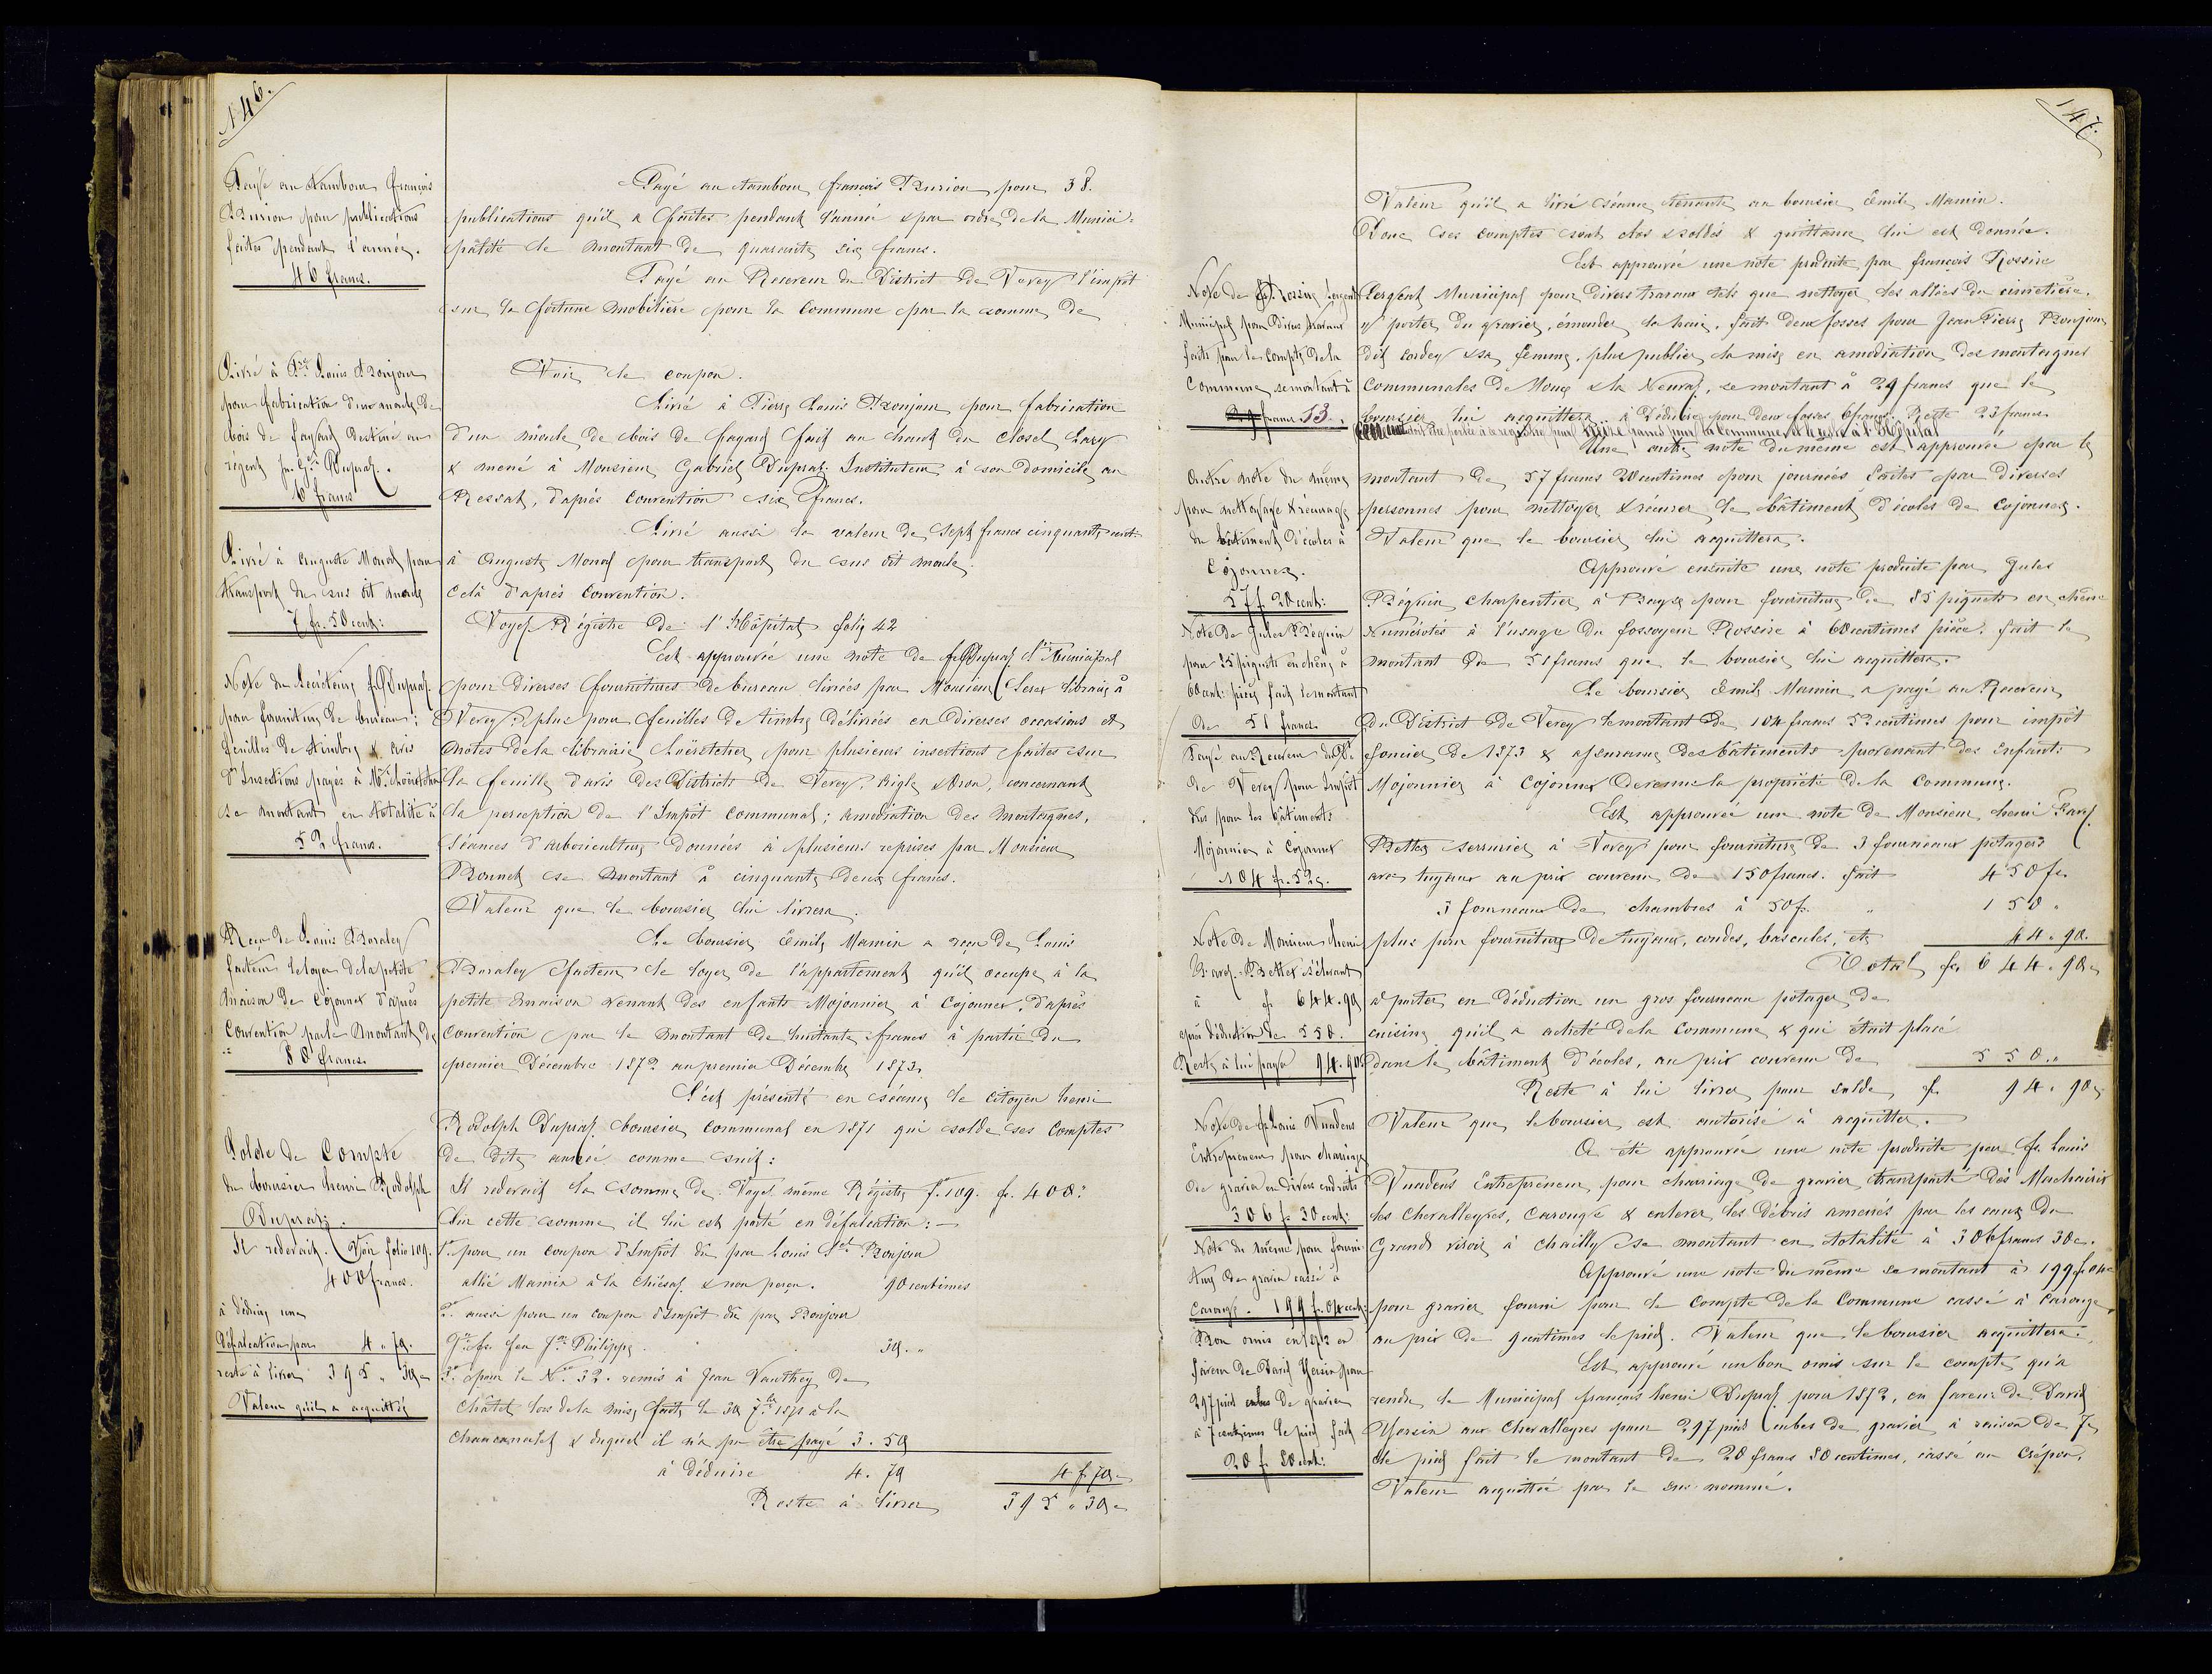 146.
Payé au tambour François
Burion pour publications
faites pendant l'année.
46 francs.
Livré à Pre Louis Bonjour
pour fabrication d'un moule de
bois de fayard destiné au
régent fs Gel Dupraz.
6 francs
Livré à Auguste Monod pour
transport du sus dit moule
7 fr. 50 cent:
Note du Secrétaire fs Dupraz
pour fourniture de bureau;
feuilles de timbre & avis
d'Insertions payés à Mr Loërtscher
se montant en totalité à
52 francs.
Reçu de Louis Buraley
facteur le loyer de la petite
maison de Cojonnex d'après
Convention par le montant de
80 francs.
Solde de Compte
du boursier henri Rodolph
Dupraz.
Il redevait. (Voir folio 109.
400 francs.
à déduire une
défalcation par 4 " 70.
reste à livrer 395 " 30 c
Valeur qu'il a acquitté
Payé au tambour françois Burion pour 38.
publications qu'il a faites pendant l'année & par ordre de la Munici-
palité le montant de quarante six francs.
Payé au Receveur du District de Vevey l'impôt
sur la fortune mobilière pour la Commune par la somme de
Voir le coupon.
Livré à Pierre Louis Bonjour pour fabrication
d'un moule de bois de fayard fait au haut du closel
& mené à Monsieur Gabriel Dupraz Instituteur à son Domicile au
Ressat, d'après Convention six francs.
Livré aussi la valeur de Sept francs cinquante cent:
à Auguste Monod pour transport du sus dit moule
Celà d'après Convention.
Voyez Régistre de l'Hôpital folio 42
Est approuvée une note de fs Dupraz Municipal
pour diverses fournitures de bureau livrées par Monsieur libraire à
Vevey; plus pour feuilles de timbre délivrées en diverses occasions et
notes de la librairie Loërtscher pour plusieurs insertions faites sur
la feuille d'avis des Districts de Vevey, Aigle & Oron, concernant
la perception de l'Impôt Communal; amodiation des montagnes,
Séances d'arboriculture données à plusieurs reprises par Monsieur
Bonnet se montant à cinquante deux francs.
Valeur que le boursier lui livrera.
Le boursier Emile Mamin a reçu de Louis
Buraley facteur le loyer de l'appartement qu'il occupe à la
petite maison venant des enfants Mojonnier à Cojonnex, d'après
Convention par le montant de huitante francs à partir du
premier Décembre 1872 au premier Décembre 1873.
S'est présenté en séance le citoyen henri
Rodolph Dupraz boursier Communal en 1871 qui solde ses Comptes
de dite année comme suit:
Il redevait la somme de. Voyez même Régistre f. 109. fr. 400 "
Sur cette somme il lui est porté en défalcation: —
1° pour un coupon d'Impôt dû par Louis Bonjour
allié Mamin à la Chiésaz & non perçu. 90 centimes
2° aussi pour un coupon d'Impôt dû par Bonjour
fs feu Philippe. 30. "
3° pour le No 32. remis à Jean Vauthey de
Châtel lors de la mise faite le 30 7bre 1871 à la
& duquel il n'a pu être payé 3. 50
à déduire 4. 70 4 f 70 c
Reste à livrer 395 " 30 c
147.
Note de fs Rossire Sergent
Municipal pour divers travaux
faits pour le compte de la
Commune se montant à
29 francs 23.
Autre note du même
pour nettoyage & récurage
du bâtiment d'écoles à
Cojonnex.
57 f 20 cent:
Note de Jules Béguin
pour 85 piquets en chêne à
60 cent: pièce fait le montant
de 51 francs
Payé au Receveur du De
de Vevey pour Impôt
dus pour les bâtiments
Mojonnier à Cojonnex
104 fr. 52 c.
Note de Monsieur henri
Bettex s'élevant
à fr 644. 90
après déduction de 550.
Reste à lui payer 94. 90
Note de fs Louis Vuadens
Entrepreneur pour charriage
de gravier en divers endroits
306 fr 30 cent:
Note du même pour fourni-
ture de gravier cassé à
Carouge. 199 fr. 04 cent:
Bon omis en 1872 en
faveur de David Yersin pour
297 pieds cubes de gravier
à 7 centimes le pied fait
20 f 80 cent:
Valeur qu'il a livré séance tenante au boursier Emile Mamin.
Donc ses comptes sont clos soldés & quittance lui est donnée.
Est approuvée une note produite par françois Rossire
Sergent Municipal pour divers travaux tels que nettoyer les allées du cimetière.
y porter du gravier, émonder la haie, fait deux fosses pour Jean Pierre Bonjour
dit & sa femme, plus publier la mise en amodiation des montagnes
Communales de & la Neuvaz, se montant à 29 francs que le
boursier lui acquittera. à déduire pour deux fosses 6 francs. Reste 23 francs
Une autre note du même est approuvée par le
montant de 57 francs 20 centimes pour journées faites par diverses
personnes pour nettoyer & récurer le bâtiment d'écoles de Cojonnex.
Valeur que le boursier lui acquittera.
Approuvé ensuite une note produite par Jules
Béguin charpentier à pour fourniture de 85 piquets en chêne
Numérotés à l'usage du fossoyeur Rossire à 60 centimes pièce, fait le
montant de 51 francs que le boursier lui acquittera.
Le boursier Emile Mamin a payé au Receveur
du District de Vevey le montant de 104 francs 52 centimes pour impôt
foncier de 1873 & assurance des bâtiments provenant des enfants
Mojonnier à Cojonnex devenue la propriété de la Commune.
Est approuvée une note de Monsieur henri
Bettex serrurier à Vevey pour fourniture de 3 fourneaux potagers
avec tuyaux au prix convenu de 150 francs. fait 450 fr.
3 fourneaux de chambres à 50 f. " 150 "
plus pour fourniture de tuyaux, coudes, bascules, etc 44. 90.
Total fr. 644. 90 c
à porter en déduction un gros fourneau potager de
cuisine qu'il a acheté de la Commune & qui était placé
dans le bâtiment d'écoles, au prix convenu de 550. "
Reste à lui livrer pour solde fr. 94. 90 c
Valeur que le boursier est autorisé à acquitter.
A été approuvée une note produite par fs Louis
Vuadens Entrepreneur pour charriage de gravier transporté dès
les Chevalleyres, Carouge & enlever les débris amenés par les eaux du
Grand à Chailly se montant en totalité à 306 francs 30 c.
Approuvé une note du même se montant à 199 fr 04 c
pour gravier fourni pour le compte de la Commune cassé à Carouge,
au prix de centimes le pied. Valeur que le boursier acquittera.
Est approuvé un bon omis sur le compte qu'a
rendu le Municipal français henri Dupraz pour 1872, en faveur de David
Yersin aux Chevalleyres pour 297 pieds cubes de gravier à raison de 7 c
le pied fait le montant de 20 francs 80 centimes, cassé au Crépon.
Valeur acquittée par le sus-nommé.